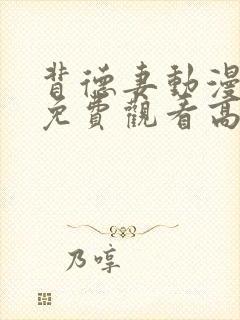 背德妻動漫
免費觀看高
乃啍